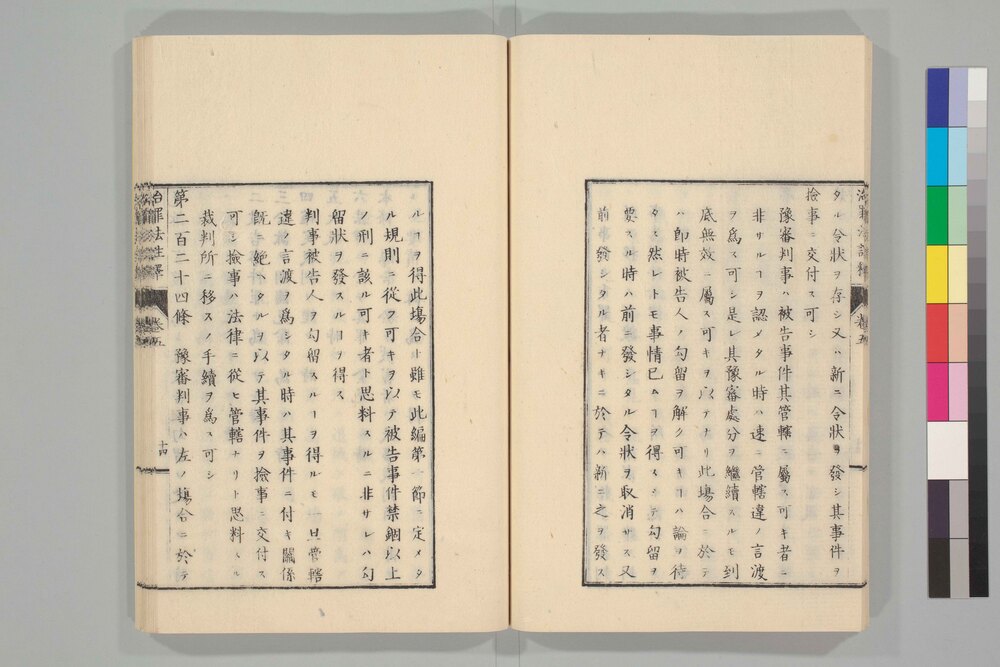 タル令狀ヲ存シ又ハ新ニ令狀ヲ發シ其事件ヲ
撿事ニ交付ス可シ
豫審判事ハ被告事件其管轄ニ屬ス可キ者ニ
非サルヿヲ認メタル時ハ速ニ管轄違ノ言渡
ヲ爲ス可シ是レ其豫審處分ヲ繼續スルモ到
底無效ニ屬ス可キヲ以テナリ此塲合ニ於テ
ハ即時被告人ノ勾留ヲ解ク可キヿハ論ヲ待
タス然レトモ事情已ムヿヲ得スシテ勾留ヲ
要スル時ハ前ニ發シタル令狀ヲ取消サス又
前ニ發シタル者ナキニ於テハ新ニ之ヲ發ス
ルヿヲ得此塲合ト雖モ此編第一節ニ定メタ
ル規則ニ從フ可キヲ以テ被告事件禁錮以上
ノ刑ニ該ル可キ者ト思料スルニ非サレハ勾
留狀ヲ發スルヿヲ得ス
判事被告人ヲ勾留スルヿヲ得ルモ一旦管轄
違ノ言渡ヲ爲シタル時ハ其事件ニ付キ關係
既ニ絶ヘタルヲ以テ其事件ヲ撿事ニ交付ス
可シ撿事ハ法律ニ從ヒ管轄ナリト思料スル
裁判所ニ移スノ手續ヲ爲ス可シ
第二百二十四條　豫審判事ハ左ノ塲合ニ於テ
治罪法註釋　卷五　十四